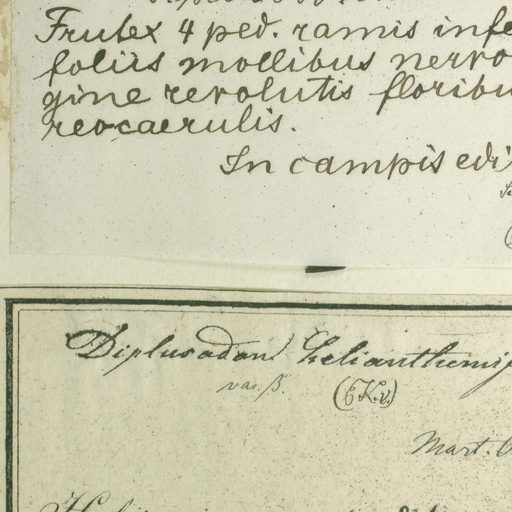 Frutex 4 ped. ramis infe
foliis mollibus nervo
gine revolutis floribu
reocaerulis.
In campis edi
Diplusodon helianthemif
var. β.
Mart.